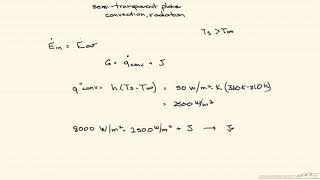 semi-transparent plate
convection, radiation
Ts > T∞
Ėin = Ėout
G = q̇conv + J
q̇"conv = h(Ts-T∞) = 50 W/m²·K (360K-310K)
= 2500 W/m²
8000 W/m² = 2500 W/m² + J → J=